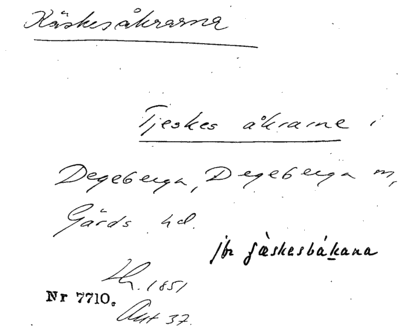 Käskesåkrarna
Tjeskes åkrarne i
Degeberga, Degeberga m,
Gärds hd.
jbr
Nr 7710.
1851
Akt 37.